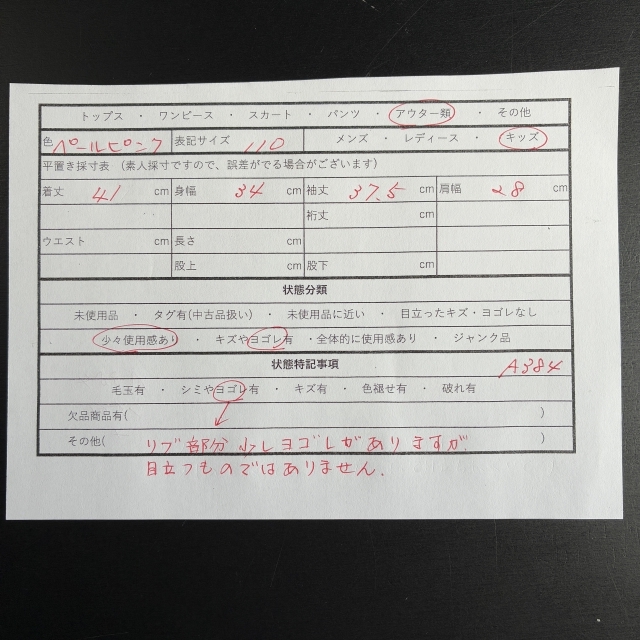 トップス ・ ワンピース ・ スカート ・ パンツ ・ アウター類 ・ その他
色 ペールピンク 表記サイズ 110 メンズ ・ レディース ・ キッズ
平置き採寸表 (素人採寸ですので、誤差がでる場合がございます)
着丈 41 cm 身幅 34 cm 袖丈 37.5 cm 肩幅 28 cm
裄丈 cm
ウエスト cm 長さ cm
股上 cm 股下 cm
状態分類
未使用品 ・ タグ有(中古品扱い) ・ 未使用に近い ・ 目立ったキズ・ヨゴレなし
少々使用感あり ・ キズやヨゴレ有 ・全体的に使用感あり ・ ジャンク品
状態特記事項 A384
毛玉有 ・ シミやヨゴレ有 ・ キズ有 ・ 色褪せ有 ・ 破れ有
欠品商品有( )
その他( リブ部分少しヨゴレがありますが )
目立つものではありません.